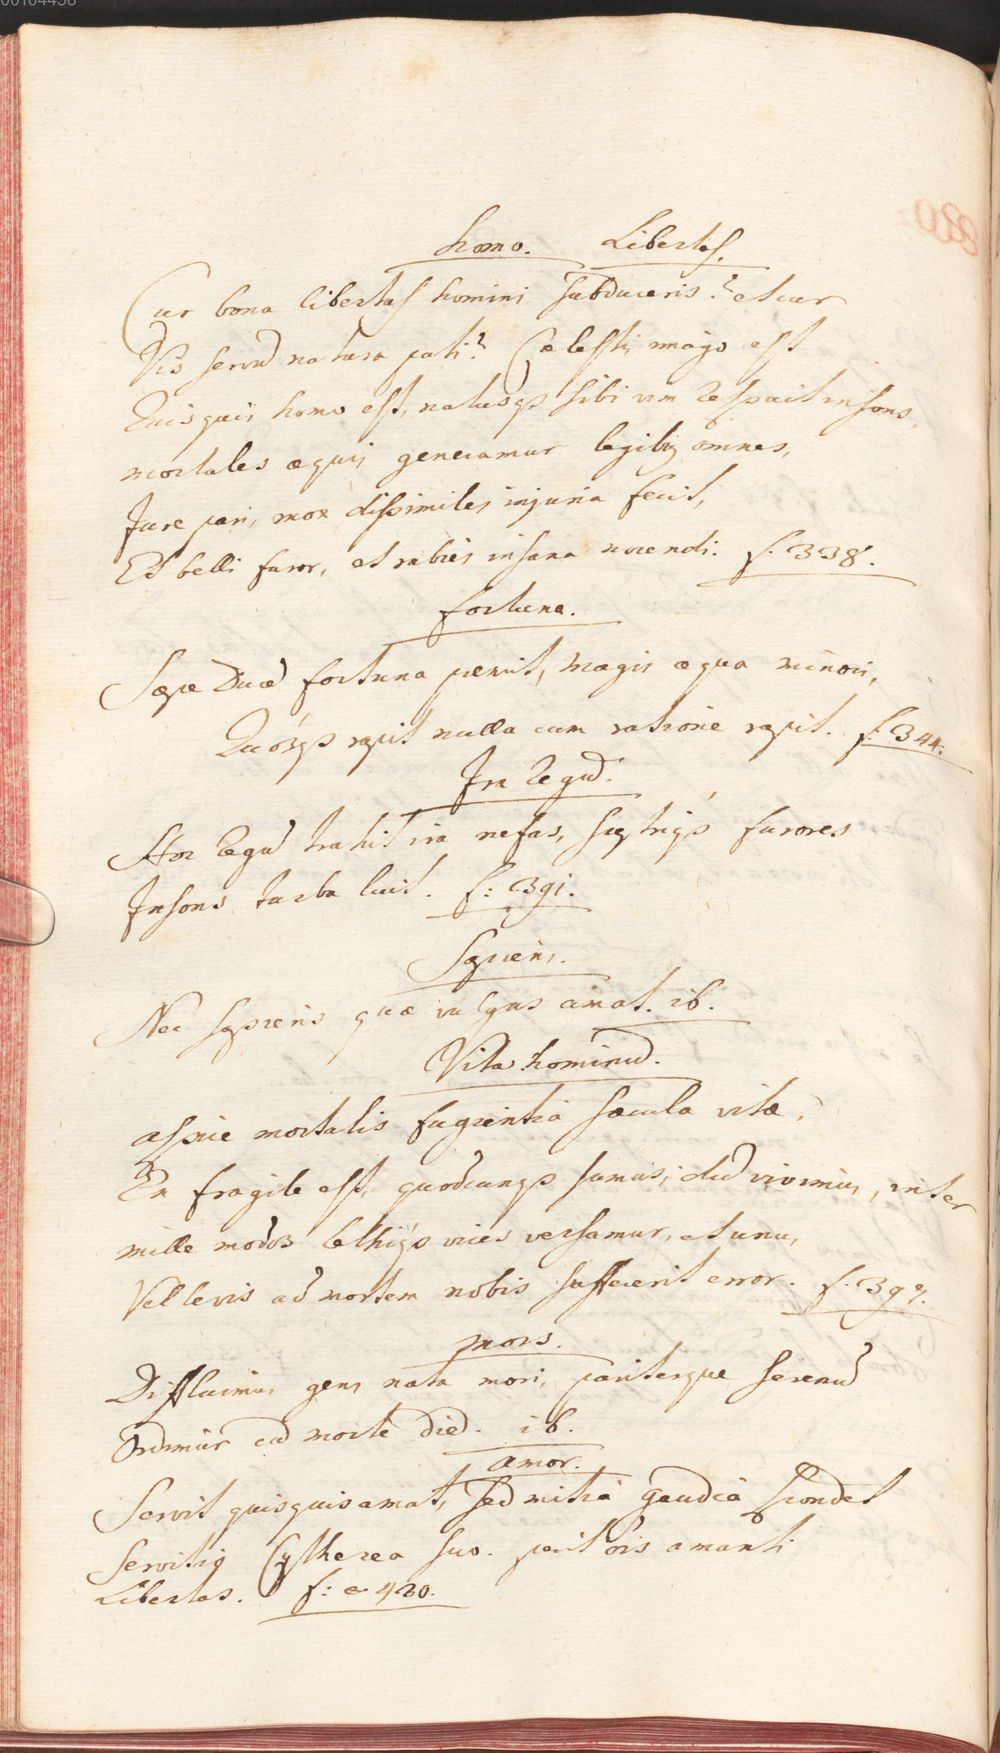 00104436
homo. Libertas.
Cur bona libertas homini subduceris? et cur
Vis servū natura pati? Cælestis imago est
Quisquis homo est, natusq sibi vim respuit insons,
mortales æquis generamur legibq omnes,
Jure pari, mox dissimiles injuria fecit,
Et belli furor, et rabies insana nocendi. f. 338.
fortuna.
Sæpe Ducē fortuna premit, magis æqua minori,
Quósq rapit nulla cum ratione rapit. f. 344.
Ira Regū.
Hoc Regū trahit ira nefas, furores
Insons turba luit. f: 391.
Sapiens.
Nec sapiens quæ vulgus amat. ib.
Vita hominū.
aspice mortalis fugientia sæcula vitæ,
En fragile est, quodcunq sumus; dū vivimus, inter
mille modos lethiq vices versamur, et unus,
Vel levis ad mortem nobis suffecerit error. f. 397.
mors.
Diffluimus gens nata mori, pariterque serenū
Ordimur cū morte diē. ib.
amor.
Servit quisquis amat, sed mitia gaudia spondet
Servitiq Cytherea suo. perit ōis amanti
Libertas. f: 420.